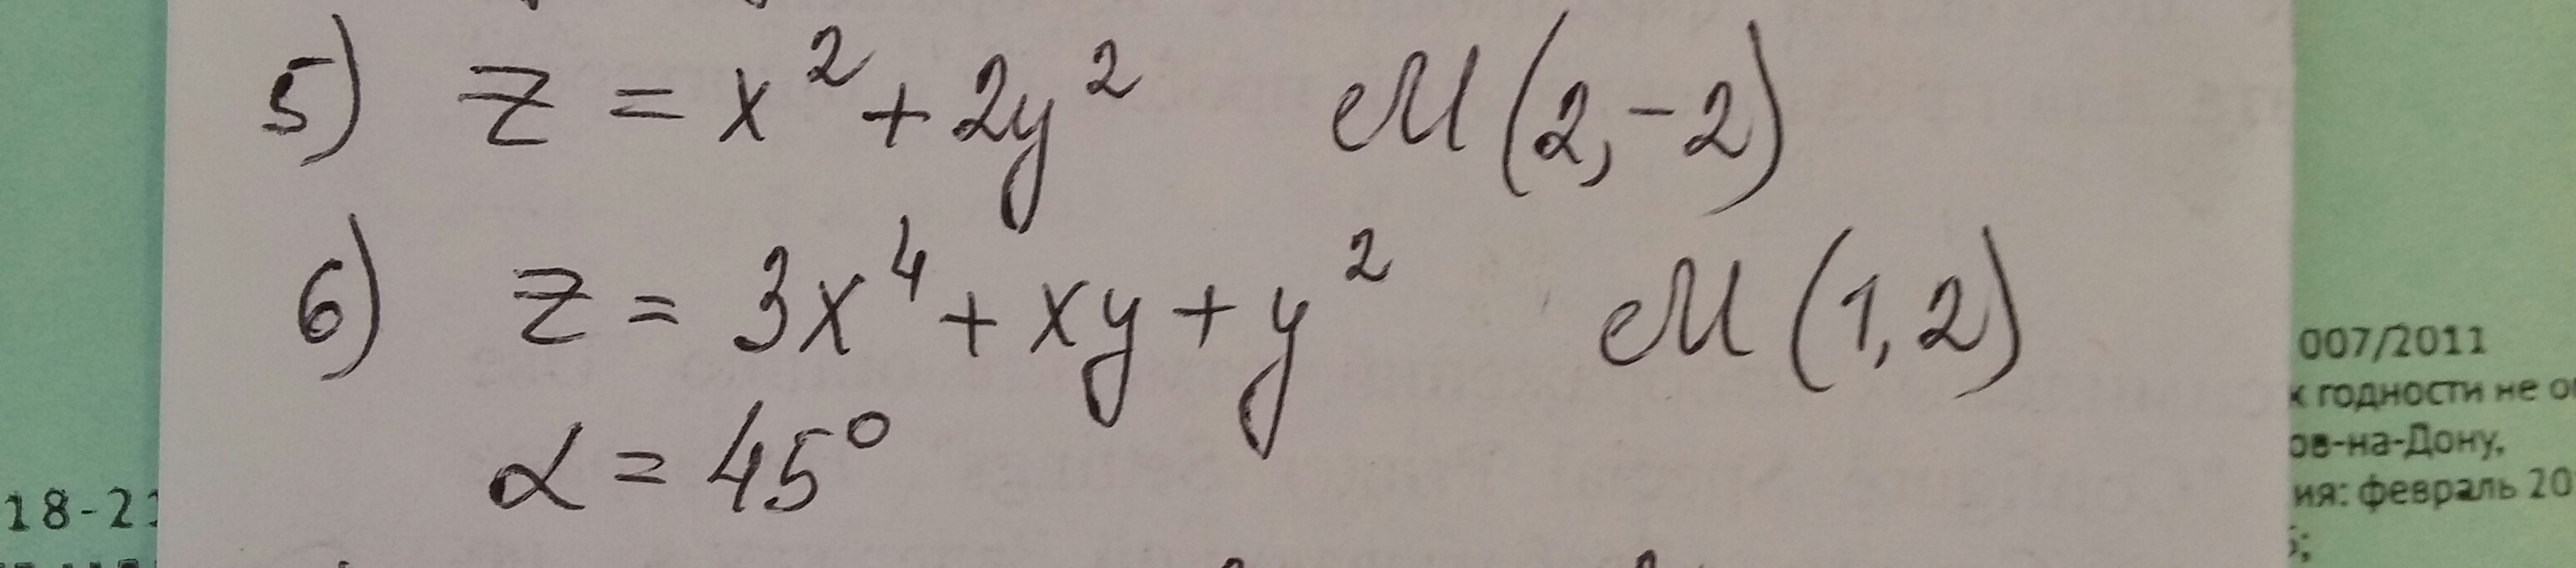 5) z = x² + 2y² M(2, -2)
6) z = 3x⁴ + xy + y² M(1, 2)
α = 45°
007/2011
к годности не
ов-на-Дону,
18-2
ия: февраль 20